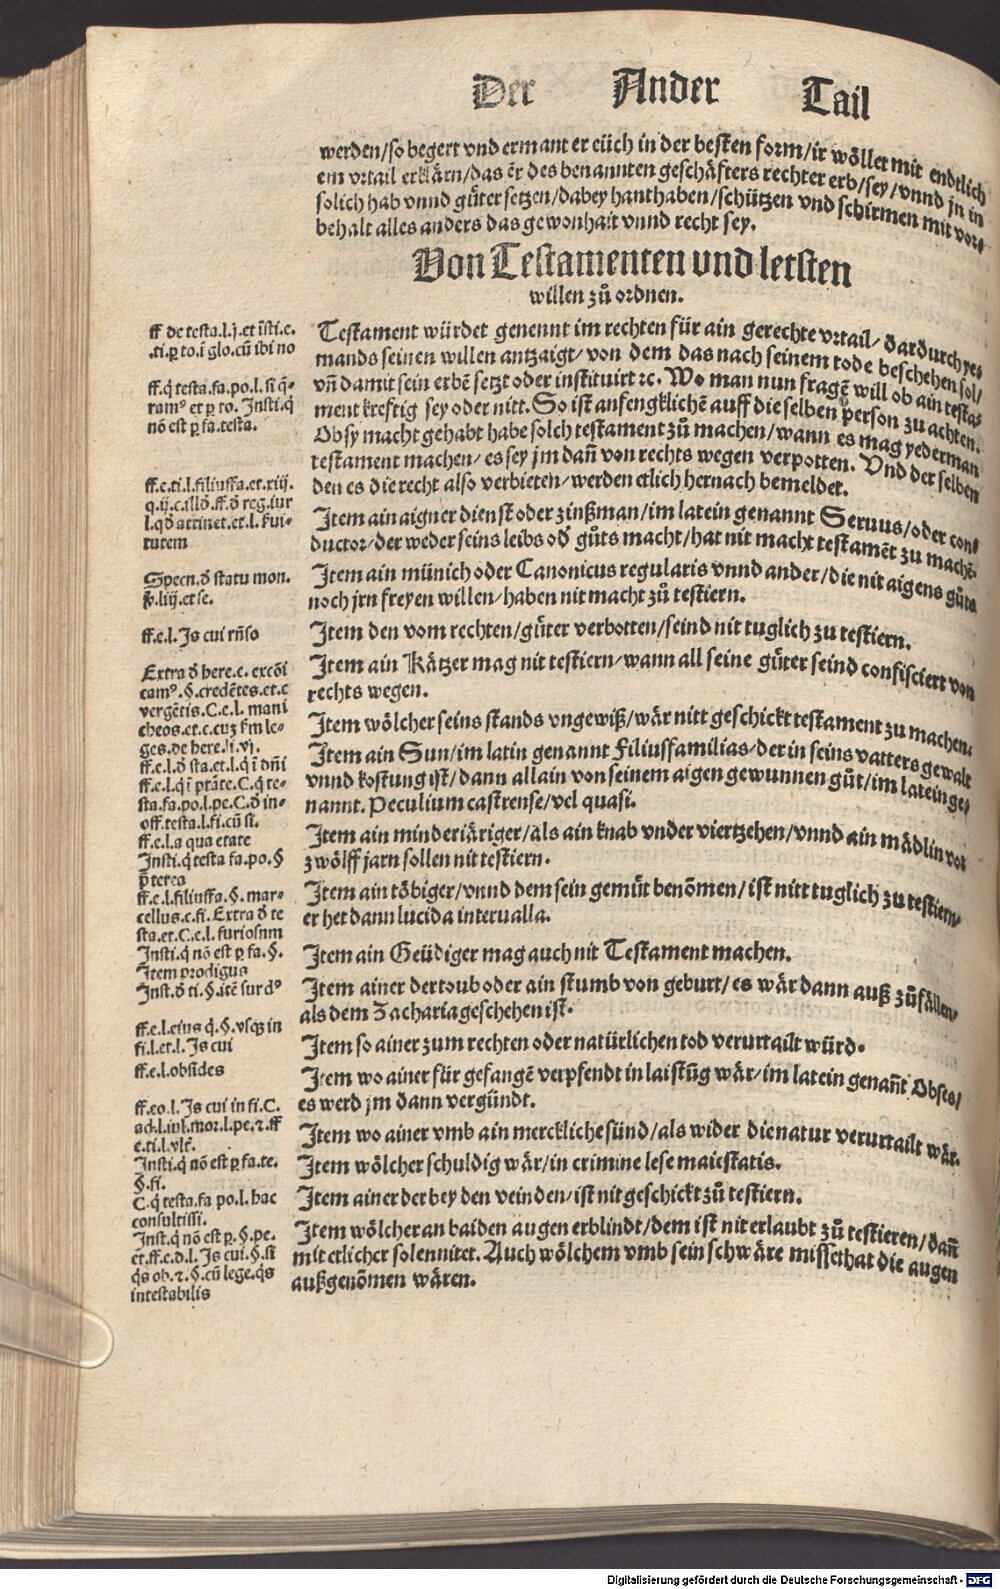 Der Ander Tail
werden/so begert vnd ermant er eüch in der besten form/ir wöllet mit endtlich
em vrtail erklärn/das er des benannten geschäfters rechter erb/sey/vnnd jn in
solich hab vnnd gůter setzen/dabey hanthaben/schützen vnd schirmen mit vor⸗
behalt alles anders das gewonhait vnnd recht sey.
Von Testamenten vnd letsten
willen zů ordnen.
ff de testa.l.j.et insti.e.
.ti.ꝑ to.ī glo.cū ibi no
Testament würdet genennt im rechten für ain gerechte vrtail/dardurch yes
mands seinen willen antzaigt/von dem das nach seinem tode beschehen sol/
ff.q̄ testa.fa.po.l.si q̄⸗
ram⁹ et ꝑ to. Insti.q̄
nō est ꝑ fa.testa.
vñ damit sein erbē setzt oder instituirt ꝛc. Wo man nun fragē will ob ain testa⸗
ment kreftig sey oder nitt. So ist anfengklichē auff die selben person zu achten.
Ob sy macht gehabt habe solch testament zů machen/wann es mag yederman
testament machen/es sey jm dañ von rechts wegen verpotten. Vnd der selben
den es die recht also verbieten/werden etlich hernach bemeldet.
ff.e.ti.l.filiusfa.et.xiij.
q.ij.c.illđ.ff.đ reg.iur
l.qđ attinet.et.l.
tutem
Item ain aigner dienst oder zinßman/im latein genannt Seruus/oder con⸗
ductor/der weder seins leibs ođ gůts macht/hat nit macht testamēt zu machē.
Specu.đ statu mon.
et se.
Item ain münich oder Canonicus regularis vnnd ander/die nit aigens gůts
noch jrn freyen willen/haben nit macht zů testiern.
ff.e.l. Is cui rñso
Item den vom rechten/gůter verbotten/seind nit tuglich zu testiern.
Extra đ here.c. excōi
cam⁹.§.credētes.et.c
vergētis.C.e.l. mani
cheos.et.c.cuꝫ ẜm le⸗
ges.de here.li.vj.
Item ain Kätzer mag nit testiern/wann all seine gůter seind confisciert von
rechts wegen.
Item wölcher seins stands vngewiß/wär nitt geschickt testament zu machen.
ff.e.l.đ sta.et.l.q̄ ī dñi
ff.e.l.q̄ ī ptāte.C.q̄ te⸗
sta.fa.po.l.pe.C.đ in⸗
off.testa.l.fi.cū si.
Item ain Sun/im latin genannt Filiusfamilias/der in seins vatters gewalt
vnnd kostung ist/dann allain von seinem aigen gewunnen gůt/im latein ge⸗
nannt. Peculium castrense/vel quasi.
ff.e.l.a qua etate
Insti.q̄ testa fa.po.§
p̄terea
Item ain minderjäriger/als ain knab vnder viertzehen/vnnd ain mädlin vor
zwölff jarn sollen nit testiern.
ff.e.l.filiusfa.§. mar⸗
cellus.c.fi. Extra đ te
sta.et.C.e.l. furiosum
Item ain töbiger/vnnd dem sein gemüt benōmen/ist nitt tuglich zu testiern/
er het dann lucida interualla.
Insti.q̄ nō est ꝑ fa.§.
Item prodigus
Item ain Geüdiger mag auch nit Testament machen.
Inst.đ ti.§.itē surd⁹
Item ainer der toub oder ain stumb von geburt/es wär dann auß zůfällen/
als dem Zacharia geschehen ist.
ff.e.l.eius q̄.§.vsqꝫ in
fi.l.et.l. Is cui
Item so ainer zum rechten oder natürlichen tod verurtailt würd.
ff.e.l.obsides
Item wo ainer für gefangē verpfendt in laistūg wär/im latein genañt Obses/
es werd jm dann vergündt.
ff.eo.l. Is cui in fi.C.
ad.l.iul.mor.l.pe.ꝛ.ff
e.ti.l.vlt̄.
Item wo ainer vmb ain merckliche sünd/als wider die natur verurtailt wär.
Insti.q̄ nō est ꝑ fa.te.
§.fi.
Item wölcher schuldig wär/in crimine lese maiestatis.
C.q̄ testa.fa po.l. hac
consultiss.
Item ainer der bey den veinden/ist nit geschickt zů testiern.
Inst.q̄ nō est ꝑ.§.pe.
et.ff.e.đ.l. Is cui.§.si
q̄s ob.ꝛ.§.cū lege.q̄s
intestabilis
Item wölcher an baiden augen erblindt/dem ist nit erlaubt zů testieren/dañ
mit etlicher solennitet. Auch wölchem vmb sein schwäre missethat die augen
außgenōmen wären.
Digitalisierung gefördert durch die Deutsche Forschungsgemeinschaft - DFG